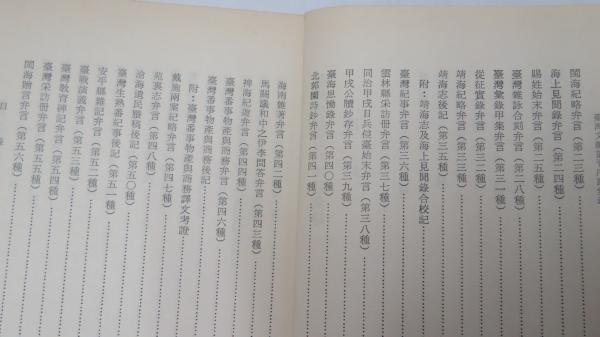 閩海紀略弁言（第二三種）
海上見聞錄弁言（第二四種）
賜姓始末弁言（第二五種）
臺灣雜詠合刻弁言（第二八種）
臺灣詩鈔甲集弁言
從征實錄弁言（第三二種）
靖海紀略弁言
靖海志後記（第三五種）
附：靖海志及海上見聞錄合校記
臺灣紀事弁言（第三六種）
雲林縣采訪冊弁言（第三七種）
同治甲戌日兵侵臺始末弁言（第三八種）
甲戌公牘鈔存弁言（第三九種）
臺海思慟錄弁言（第四〇種）
北郭園詩鈔弁言（第四一種）
海南雜著弁言（第四二種）
馬關議和中之伊李問答弁言（第四三種）
裨海紀遊弁言（第四四種）
臺灣番事物產與商務弁言（第四六種）
臺灣番事物產與商務後記
附：臺灣番事物產與商務譯文考證
戴施兩案紀略弁言（第四七種）
苑裏志弁言（第四八種）
滄海遺民賸稿後記（第五〇種）
臺灣生熟番紀事後記（第五一種）
安平縣雜記弁言（第五二種）
臺戰演義弁言（第五三種）
臺灣教育碑記弁言（第五四種）
臺灣采訪冊弁言（第五五種）
閩海贈言弁言（第五六種）
目